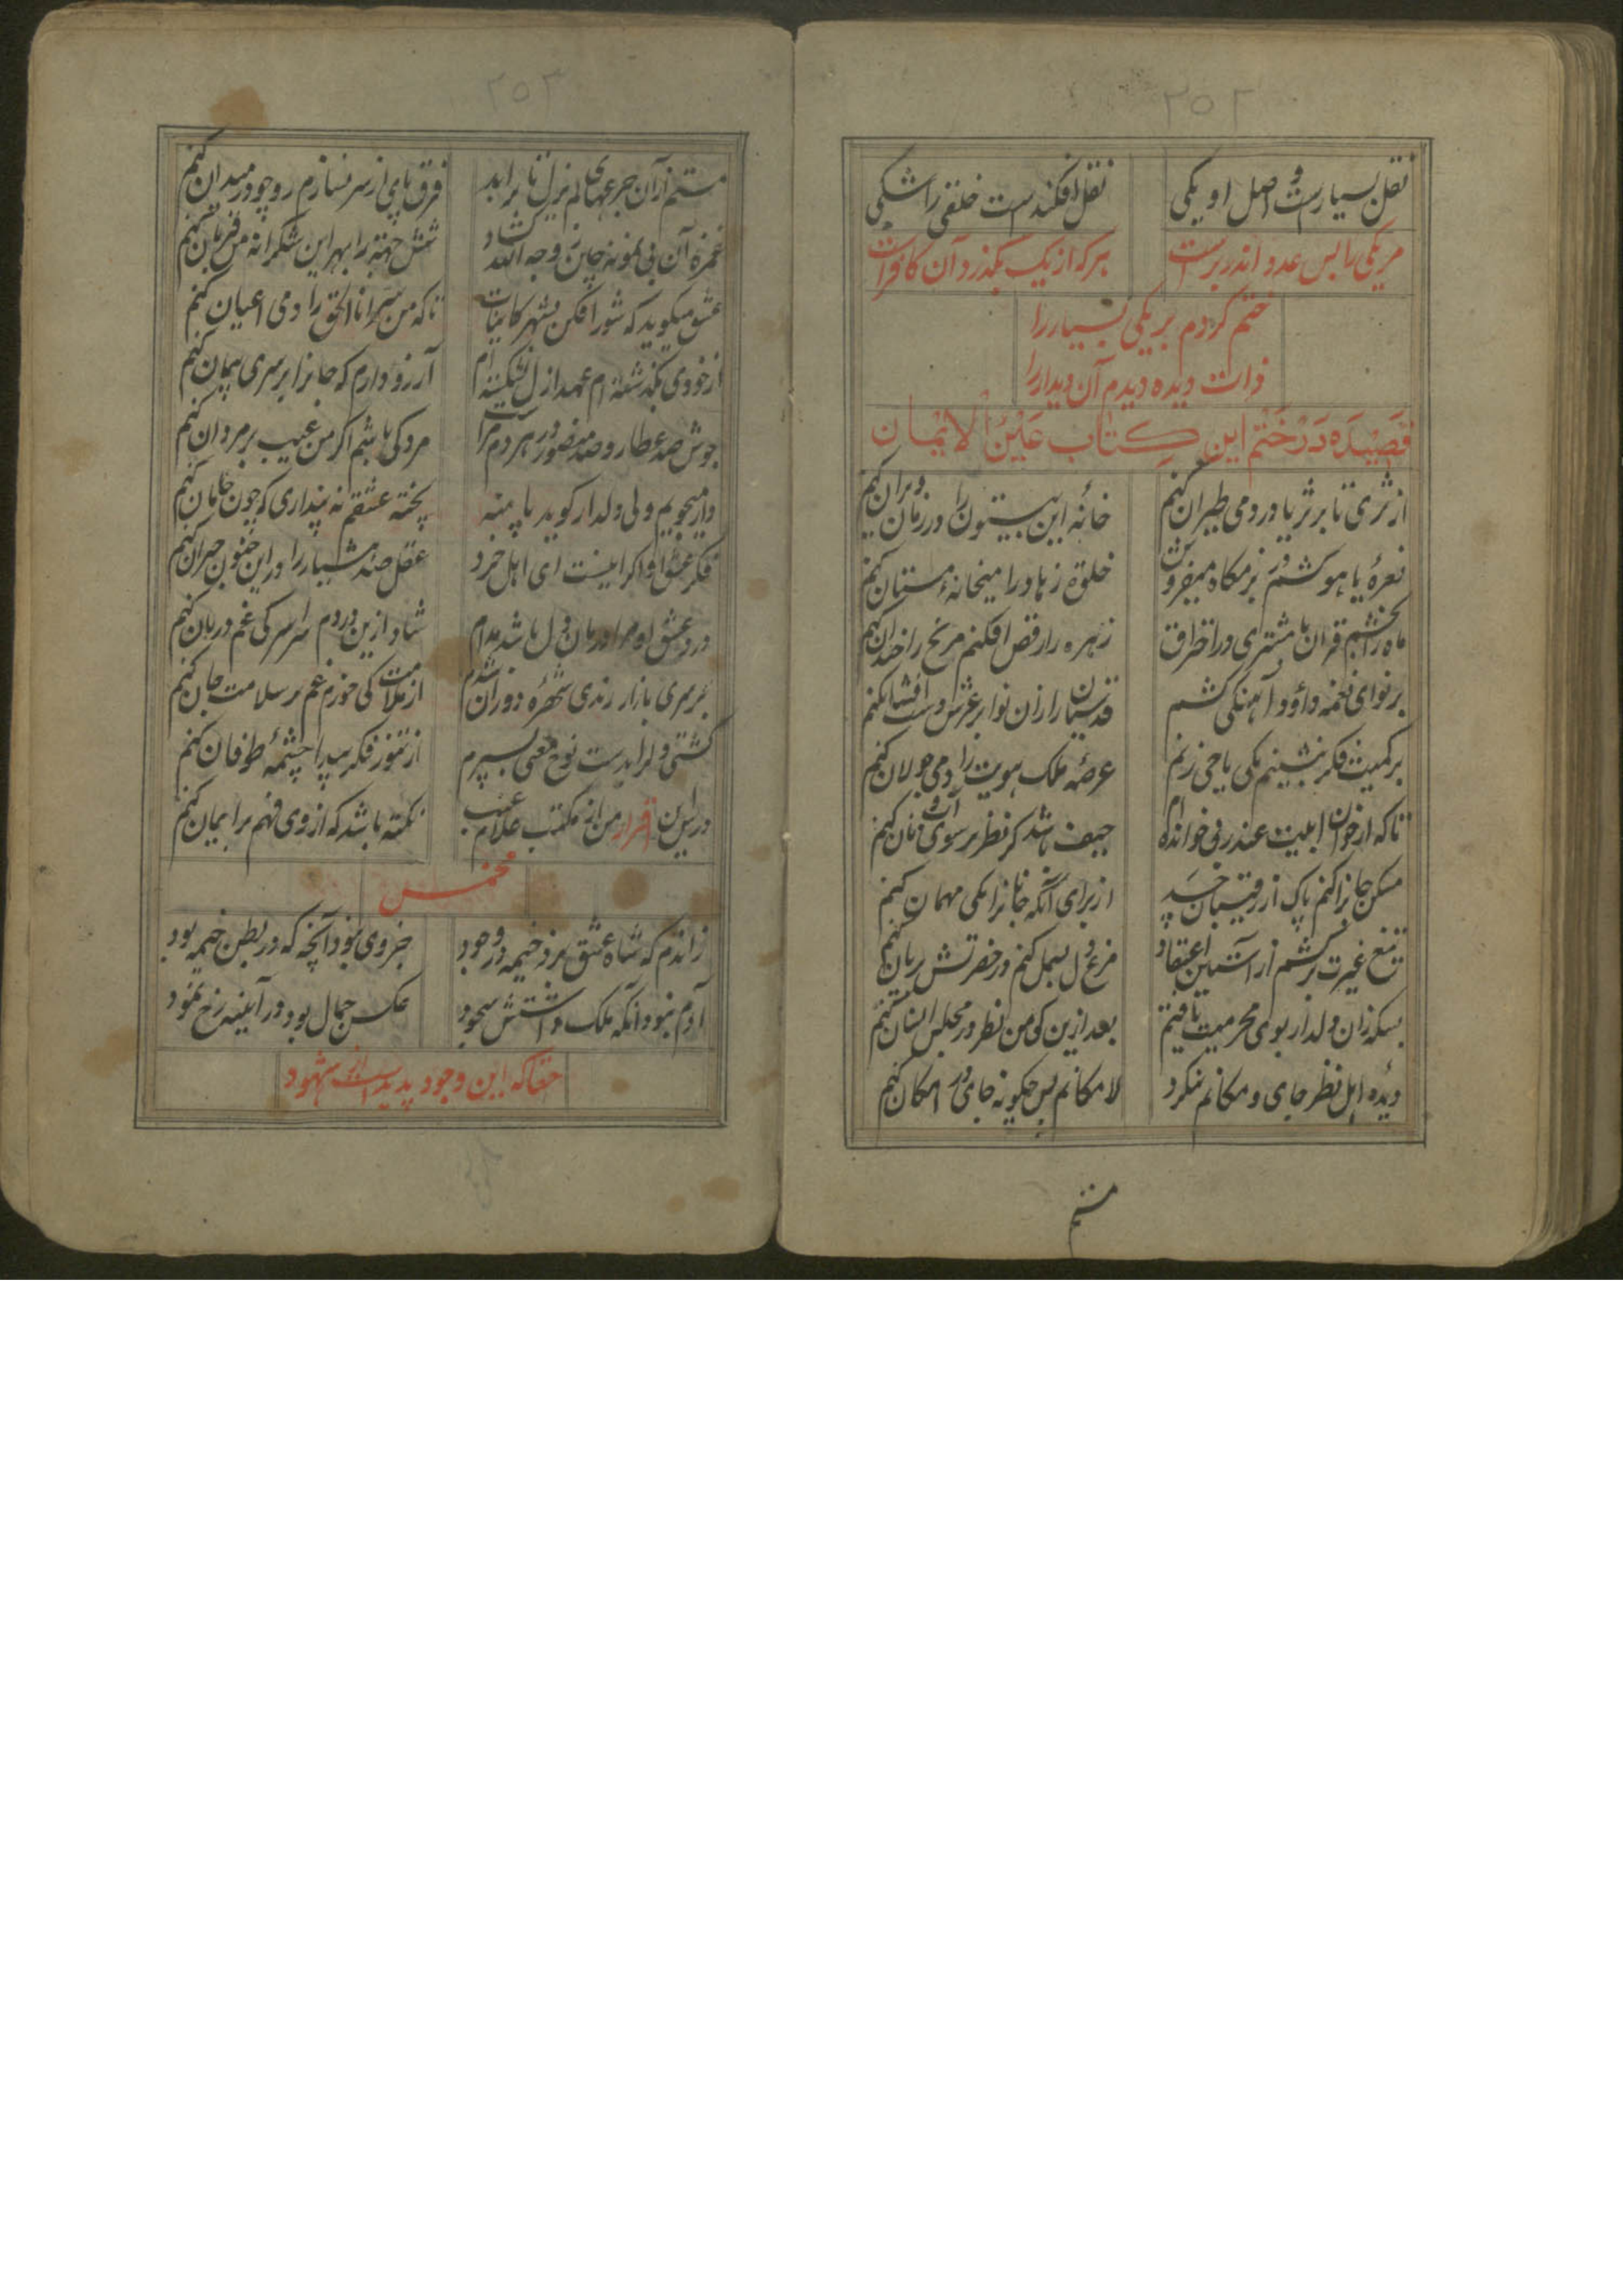 ۲۵۲
نقل بسیارست و اصل او یکی نقل افکندست خلقی را شکی
مر یکی را بس عدد اندر برست هر که از یک بگذرد آن کافرست
ختم کردم بر یکی بسیار را
ذات دیده دیدم آن دیدار را
قصیده در ختم این کتاب عین الایمان
از ثری تا بر ثریا در دمی طیران کنم خانه این بیستون را در زمان ویران کنم
نعره یا هو کشم در بزمگاه میفروش خلوة زهاد را میخانه مستان کنم
ماه را بخشم قران با مشتری در احتراق زهره را رقص افکنم مریخ را خندان کنم
بر نوای نغمه داؤد آهنگی کشم قدسیان را زان نوا بر عرش دست افشان کنم
بر کمیت فکر بنشینم یکی یا حی زنم عرصه ملک هویت را دمی جولان کنم
تا که از خوان ابیت عند ربی خوانده ام حیف باشد گر نظر بر سوی آب و نان کنم
مسکن جانرا کنم پاک از رقیبان حسد از برای آنکه جانانرا یکی مهمان کنم
تیغ غیرت برکشم از آستین اعتقاد مرغ دل بسمل کنم در حضرتش بریان کنم
بسکه زان دلدار بوی محرمیت یافتم بعد ازین کی من نظر در مجلس انسان کنم
دیده اهل نظر جای و مکانم ننگرد لا مکانم پس چگونه جای در امکان کنم
مستم
۲۵۳
مستم از آن جرعهای لم یزل تا بر ابد فرق پای از سر نسازم رو چو در میدان کنم
غمزه آن بی نمونه چاین وجه الله شش جهة را بهر این شکرانه من قربان کنم
عشق میگوید که شور افکن بشهر کاینات تا که من سر انا الحق را دمی اعیان کنم
از خودی بگذشته ام عهد ازل نشکسته ام آرزو دارم که جانرا بر سری پیمان کنم
جوش صد عطار و صد منصور در هر دم مراست مرد کی باشم اگر من عیب بر مردان کنم
وار میجویم ولی دلدار گوید پا منه پخته عشقم نه پنداری که چون خامان کنم
فکر عشق او اگر اینست ای اهل خرد عقل صد هشیار را در این جنون حیران کنم
درد عشق او مرا درمان دل باشد مدام شاد ازین دردم سراسر کی غم درمان کنم
بر سری بازار رندی شهره دوران شدم از ملامت کی خورم غم بر سلامت جان کنم
کشتی دلرا بدست نوح معنی بسپرم از تنور فکر پیدا چشمه طوفان کنم
درس این اقرار من از مکتب علام غیب نکته باشد که از وی فهم بر ایمان کنم
مخمس
زاندم که شاه عشق بزد خیمه در وجود جزوی نبود آنچه که در بطن خیمه بود
آدم نبود آنکه ملک داشتش سجود عکس جمال بود در آیینه رخ نمود
حقا که این وجود پدید است از شهود